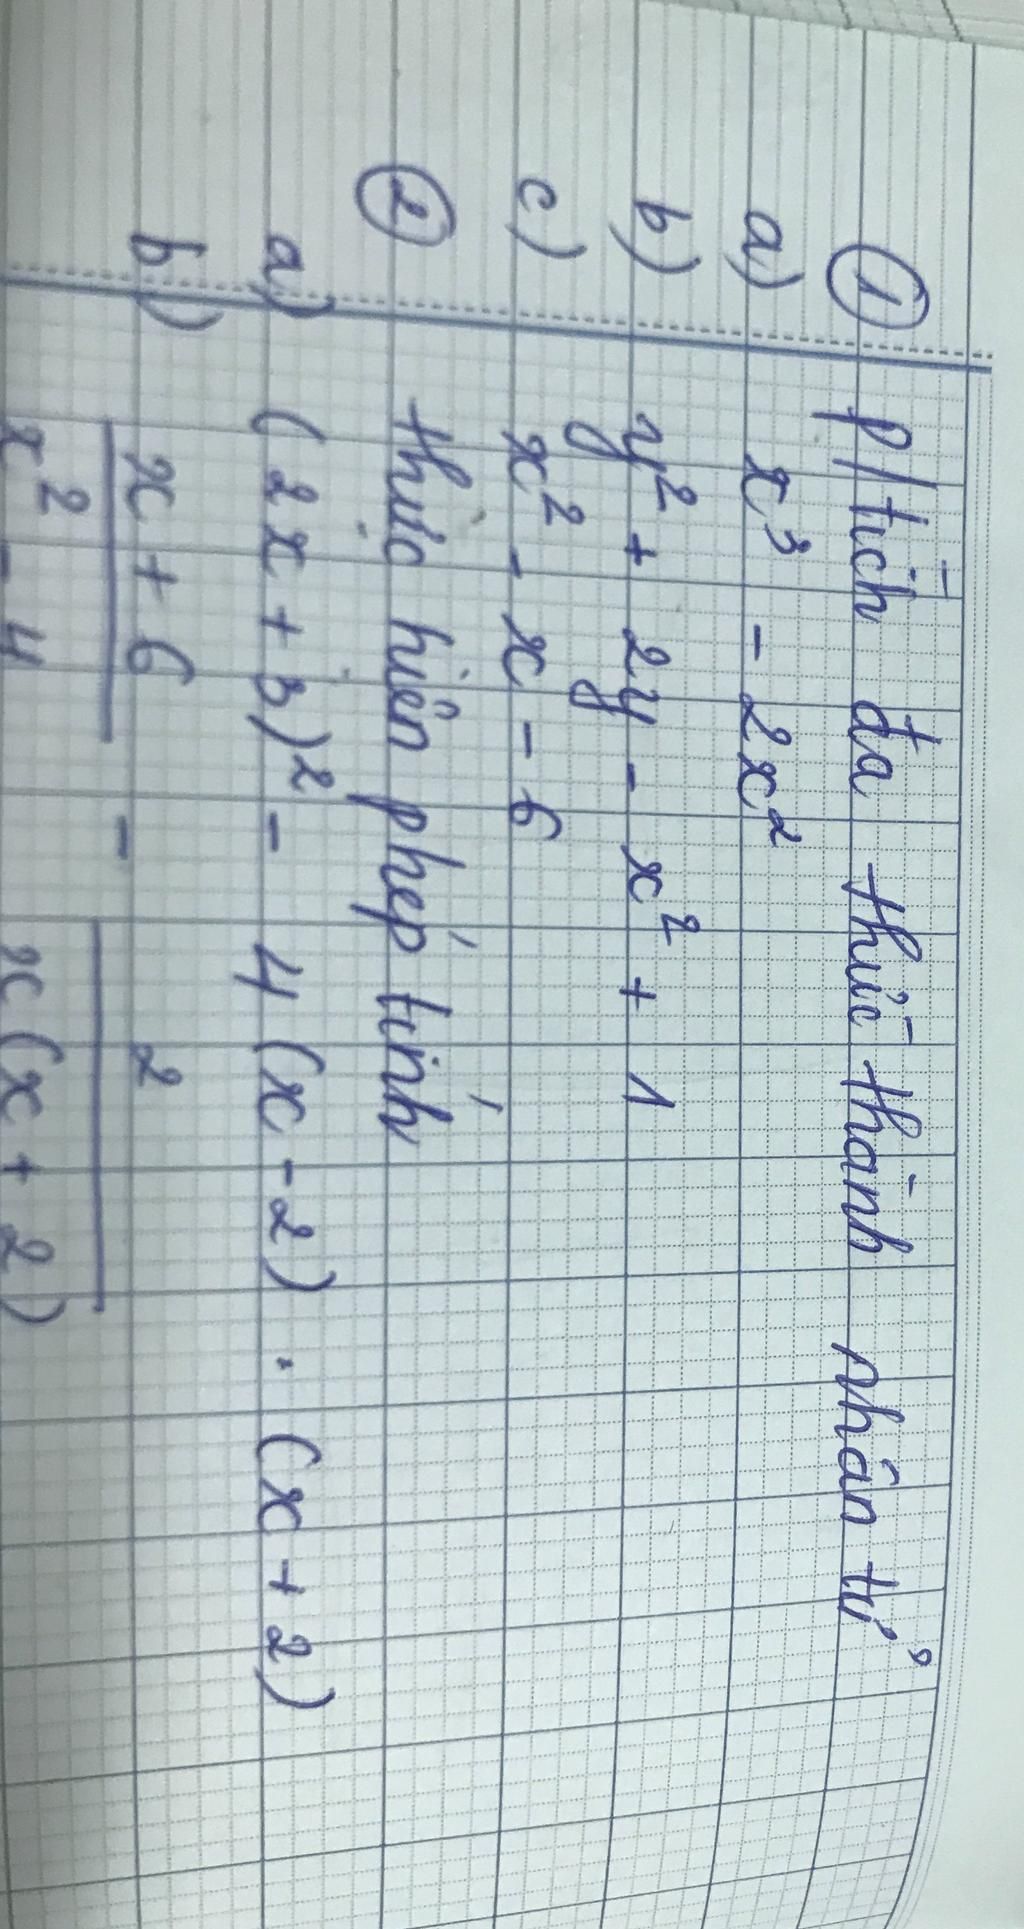 ① p/tích đa thức thành nhân tử
a) x³ - 2x²
b) y² + 2y - x² + 1
c) x² - x - 6
② thực hiện phép tính
a) (2x + 3)² - 4(x - 2) . (x + 2)
b) x + 6 / x² - 4 - 2 / x(x + 2)